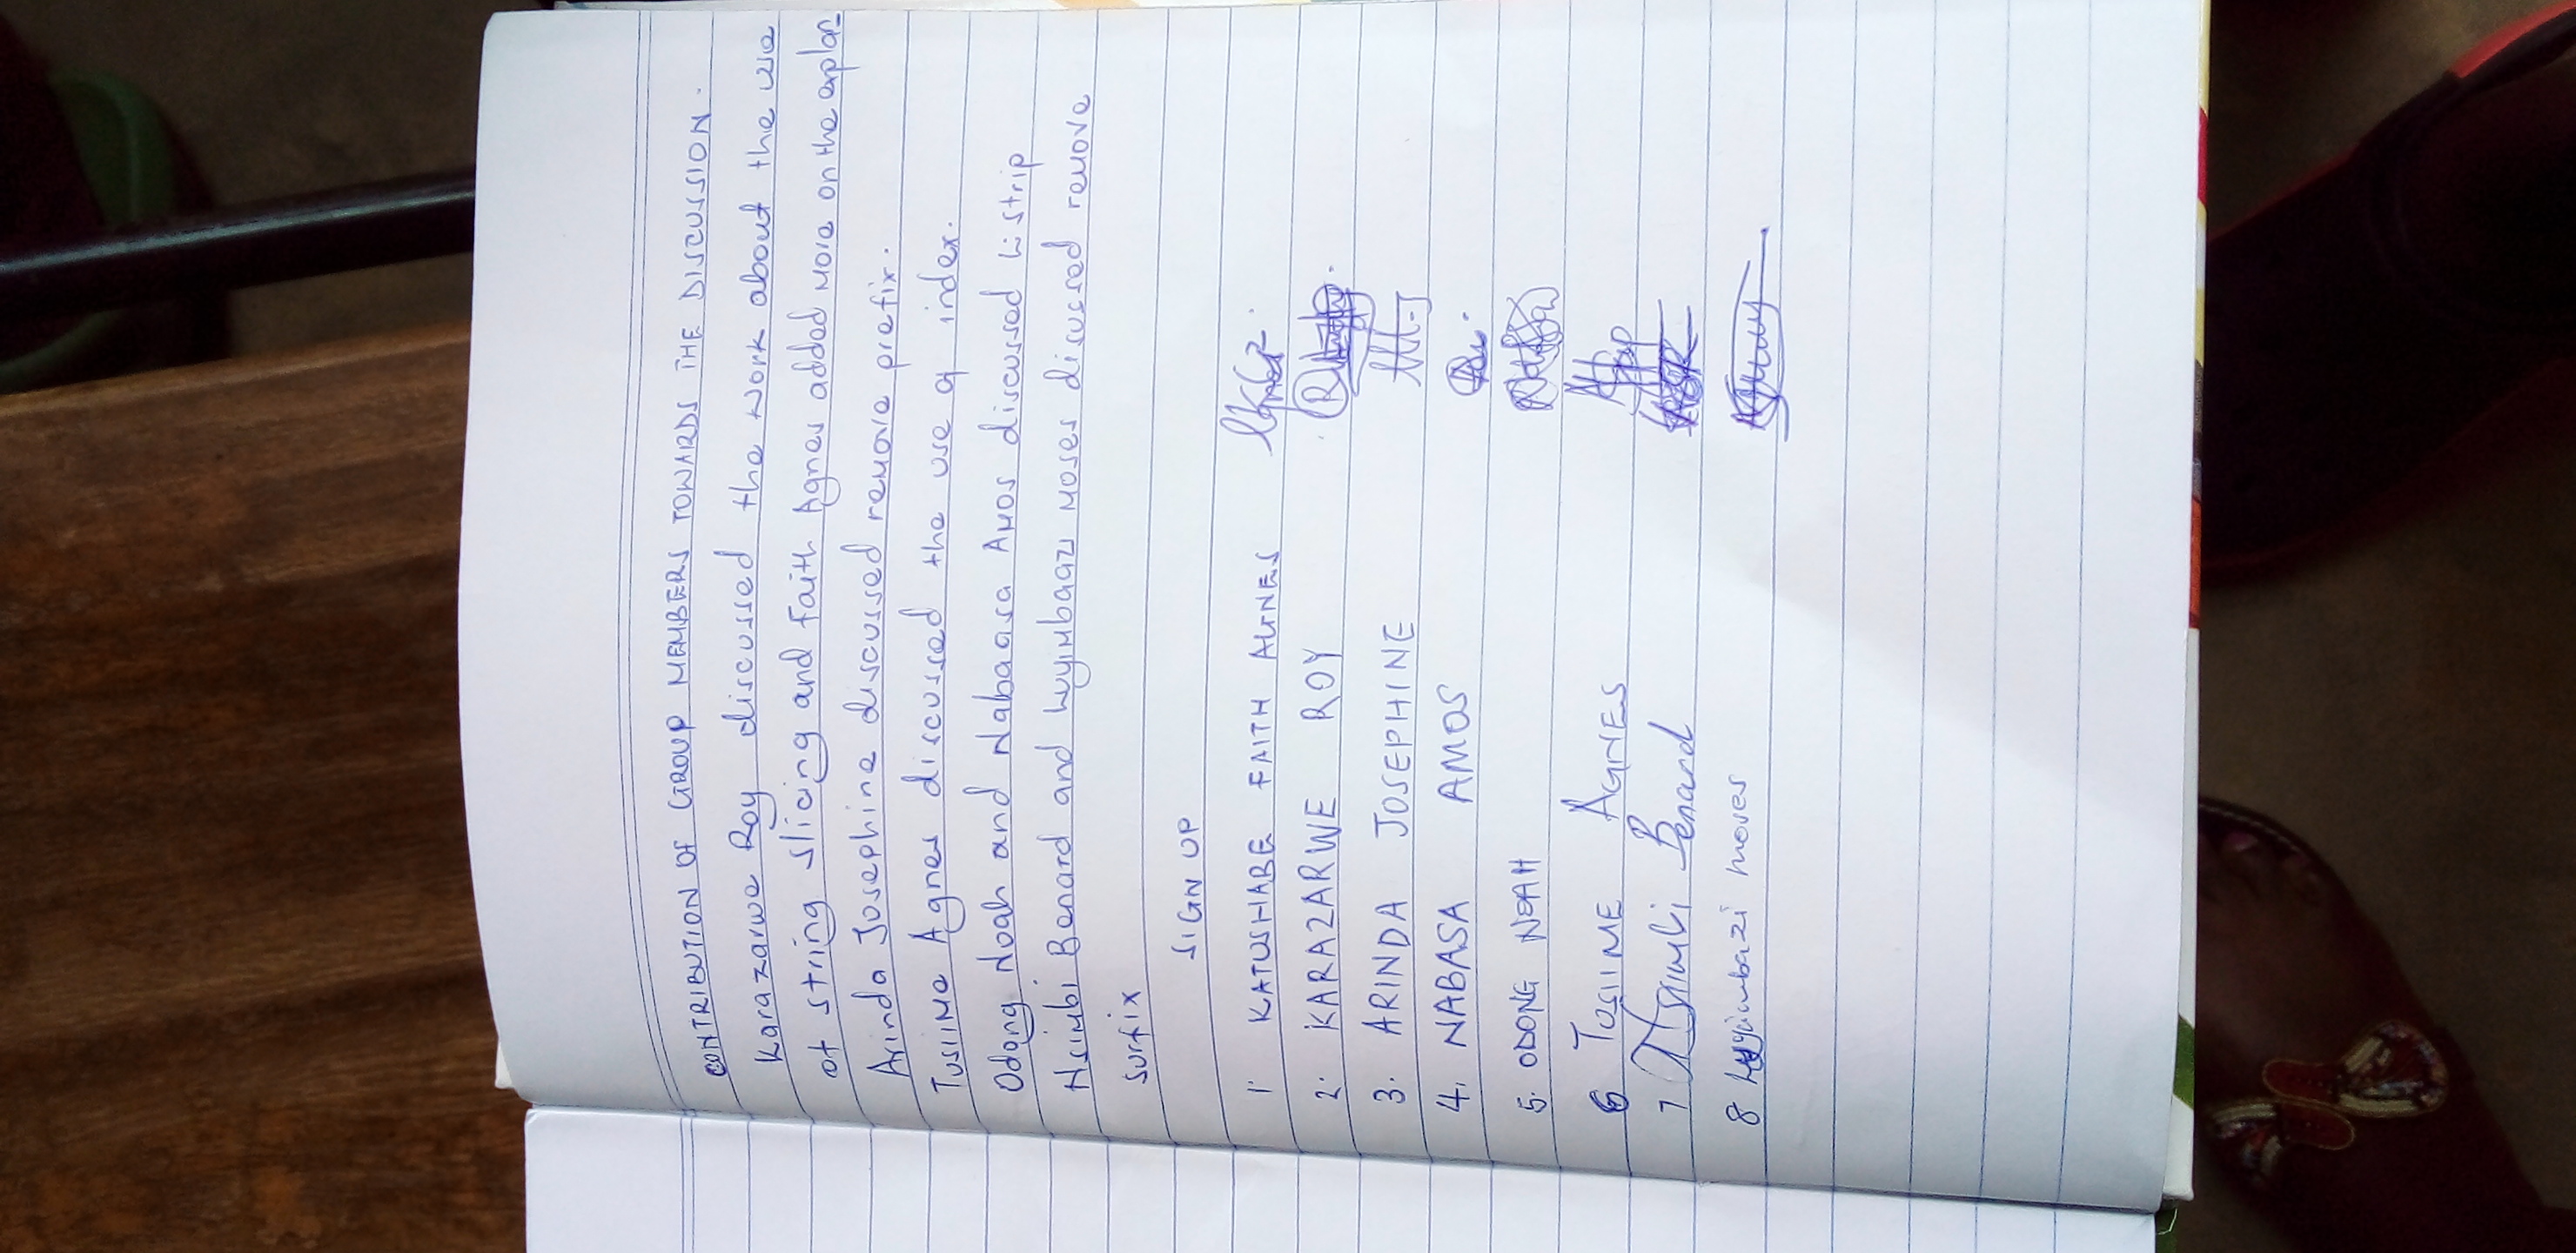 CONTRIBUTION OF GROUP MEMBERS TOWARDS THE DISCUSSION.
Karazarwe Roy discussed the work about the use
of string slicing and Faith Agnes added more on the explan
Arinda Josephine discussed remove prefix.
Tusiime Agnes discussed the use of index.
Odong Noah and Nabaasa Amos discussed strip
Nsimbi Benard and Luyimbaazi Moses disussed remove
surfix
SIGN UP
1. KATUSHABE FAITH AGNES
2. KARAZARWE ROY
3. ARINDA JOSEPHINE
4. NABASA AMOS
5. ODONG NOAH
6 TUSIIME AGNES
7 Nsimbi Benard
8 Luyimbazi moses